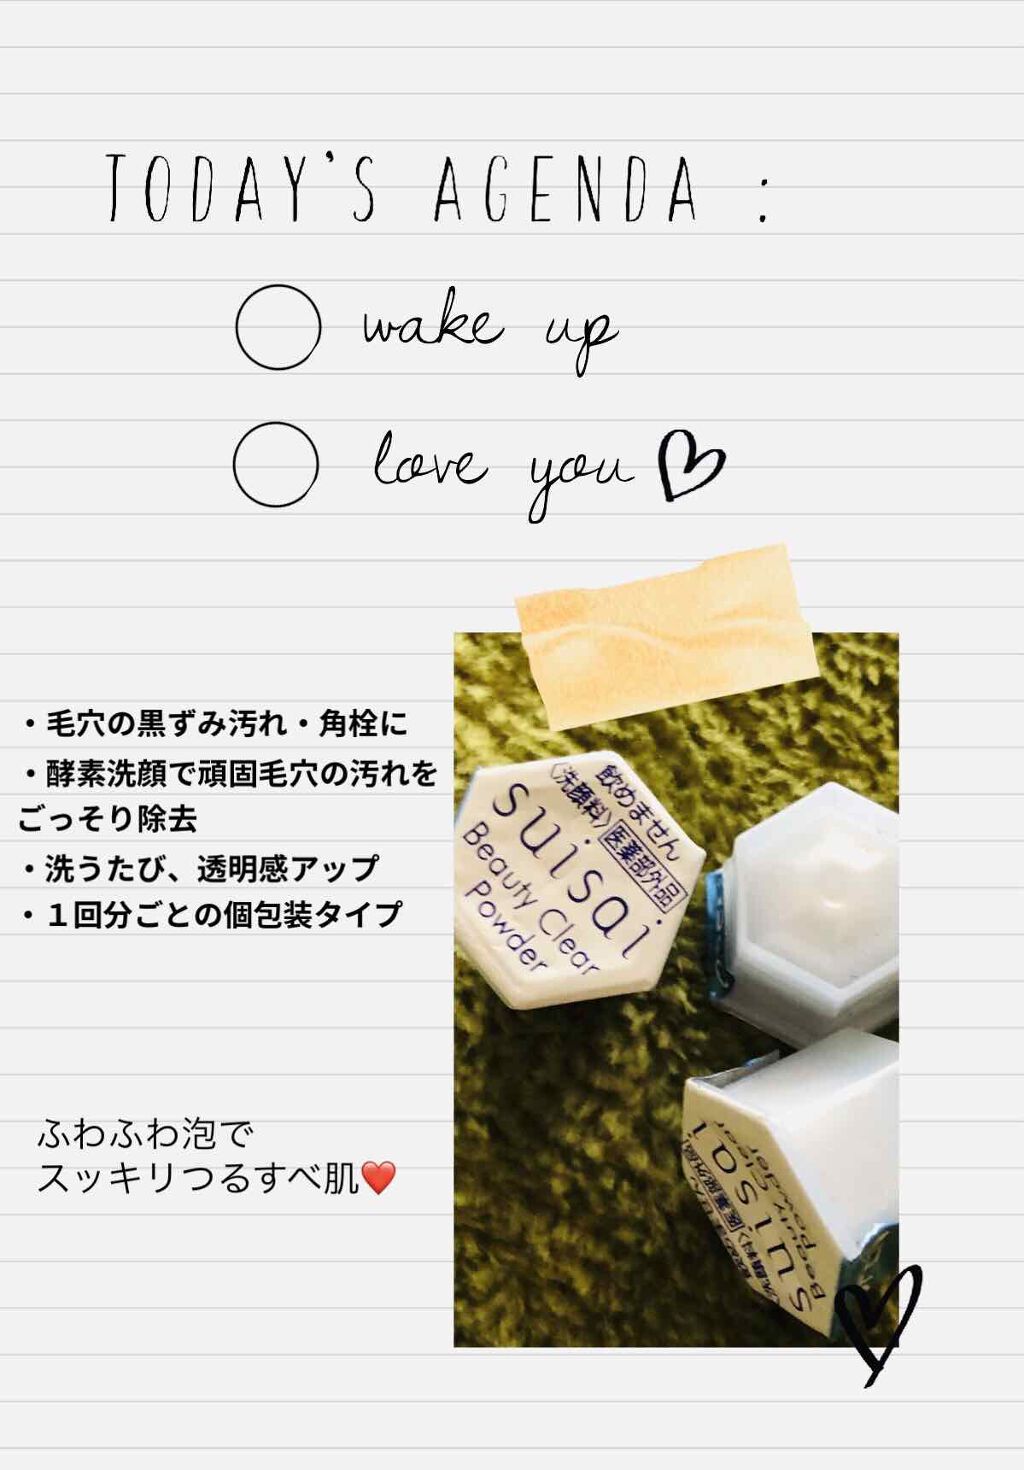 TODAY'S AGENDA :
wake up
love you
・毛穴の黒ずみ汚れ・角栓に
・酵素洗顔で頑固毛穴の汚れを
ごっそり除去
・洗うたび、透明感アップ
・１回分ごとの個包装タイプ
飲めません
〈洗顔料〉医薬部外品
suisai
Beauty Clear
Powder
ふわふわ泡で
スッキリつるすべ肌❤️
suisai
Beauty Clear
Powder